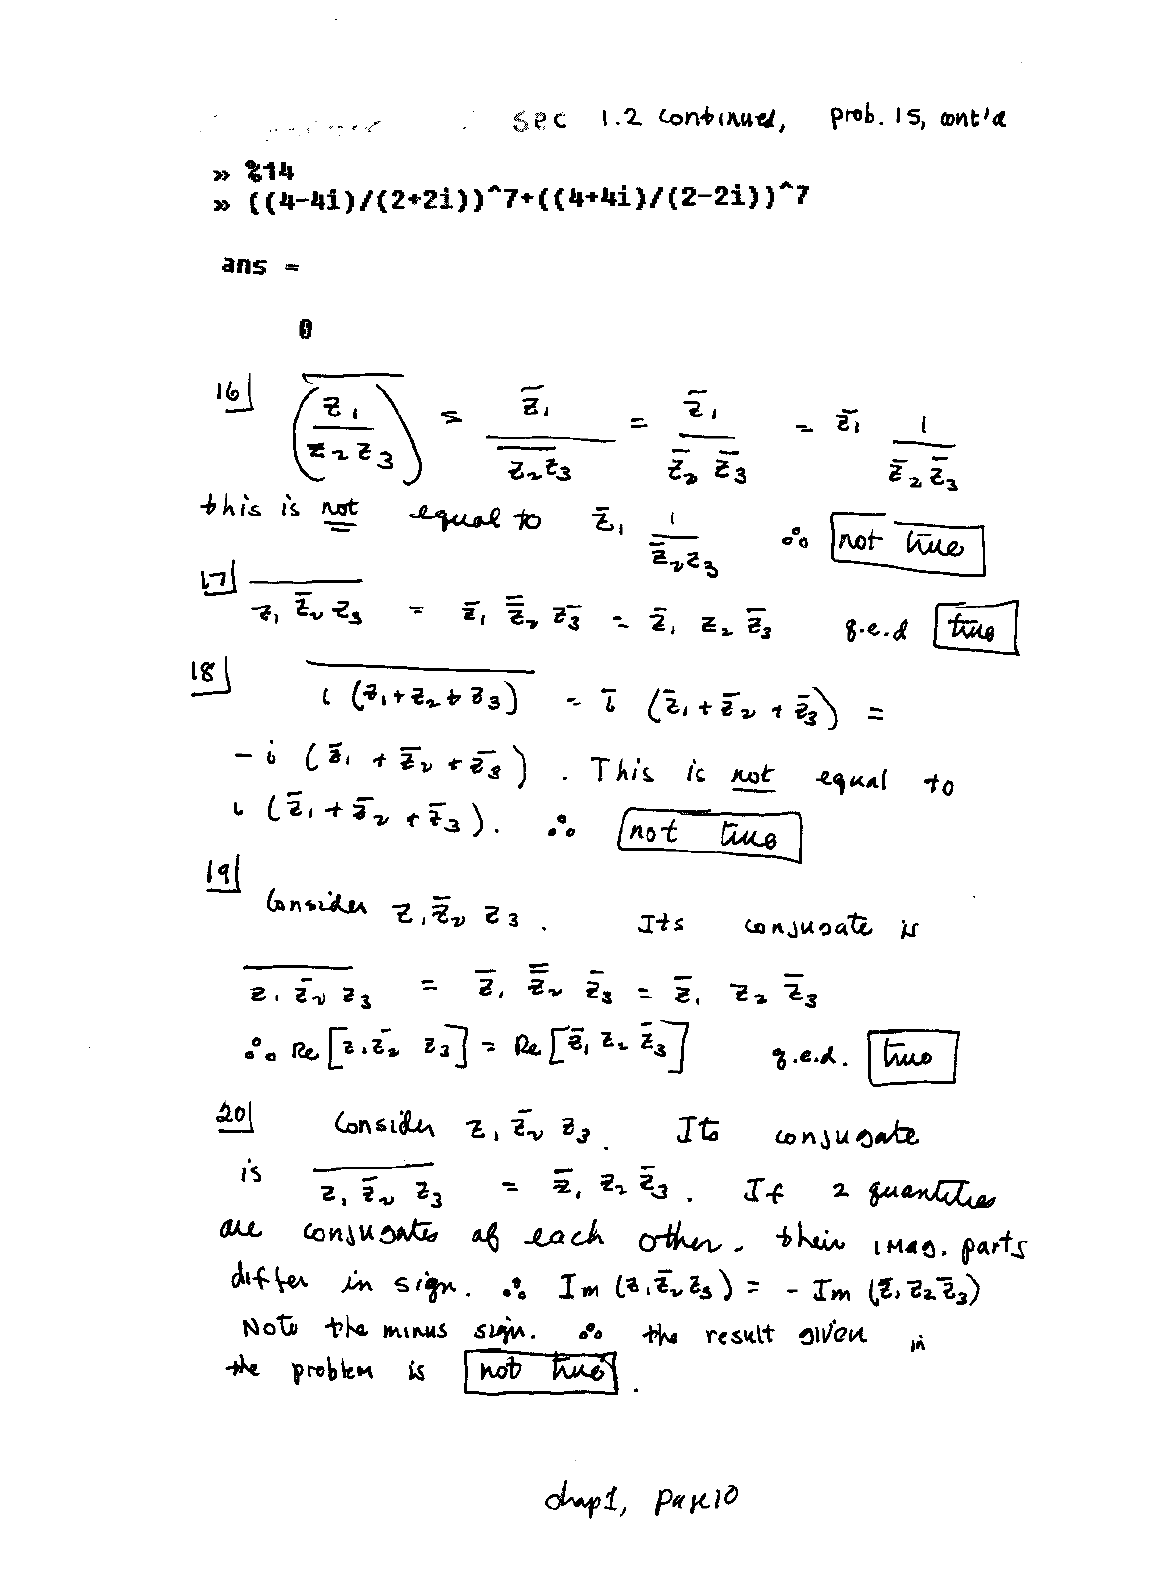 sec 1.2 continued, prob. 15, cont'd
» %14
» ((4-4i)/(2+2i))^7+((4+4i)/(2-2i))^7
ans =
0
16 \overline{(z₁/(z₂z₃))} = z̄₁/\overline{z₂z₃} = z̄₁/(z̄₂ z̄₃) = z̄₁ 1/(z̄₂ z̄₃)
this is not equal to z̄₁ 1/(z̄₂z₃) ∴ not true
17 \overline{z₁ z̄₂ z₃} = z̄₁ \overline{z̄₂} z̄₃ = z̄₁ z₂ z̄₃ q.e.d true
18 \overline{i (z₁+z₂+z₃)} = ī (z̄₁+z̄₂+z̄₃) =
-i (z̄₁+z̄₂+z̄₃). This is not equal to
i (z̄₁+z̄₂+z̄₃). ∴ not true
19 Consider z₁z̄₂ z₃. Its conjugate is
\overline{z₁ z̄₂ z₃} = z̄₁ \overline{z̄₂} z̄₃ = z̄₁ z₂ z̄₃
∴ Re[z₁z̄₂ z₃] = Re[z̄₁ z₂ z̄₃] q.e.d. true
20 Consider z₁ z̄₂ z₃. Its conjugate
is \overline{z₁ z̄₂ z₃} = z̄₁ z₂ z̄₃. If 2 quantities
are conjugates of each other, their imag. parts
differ in sign. ∴ Im (z₁z̄₂z₃) = - Im (z̄₁z₂z̄₃)
Note the minus sign. ∴ the result given in
the problem is not true.
chap1, page10